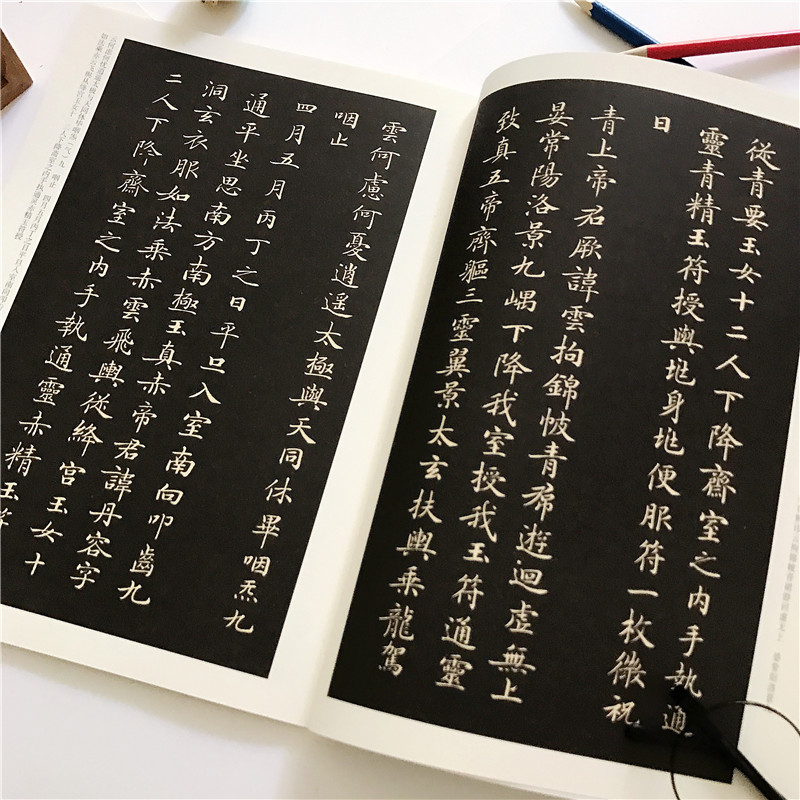 從青要玉女十二人下降齋室之內手執通
靈青精玉符授與垗身垗便服符一枚微祝
曰
青上帝君厥諱雲拘錦帔青帬遊迴虛無上
晏常陽洛景九嵎下降我室授我玉符通靈
致真五帝齊軀三靈翼景太玄扶輿乘龍駕
雲何慮何憂逍遥太極與天同休畢咽炁九
咽止
四月五月丙丁之日平旦入室南向叩齒九
通平坐思南方南極玉真赤帝君諱丹容字
洞玄衣服如法乘赤雲飛輿從絳宮玉女十
二人下降齋室之內手執通靈赤精玉符